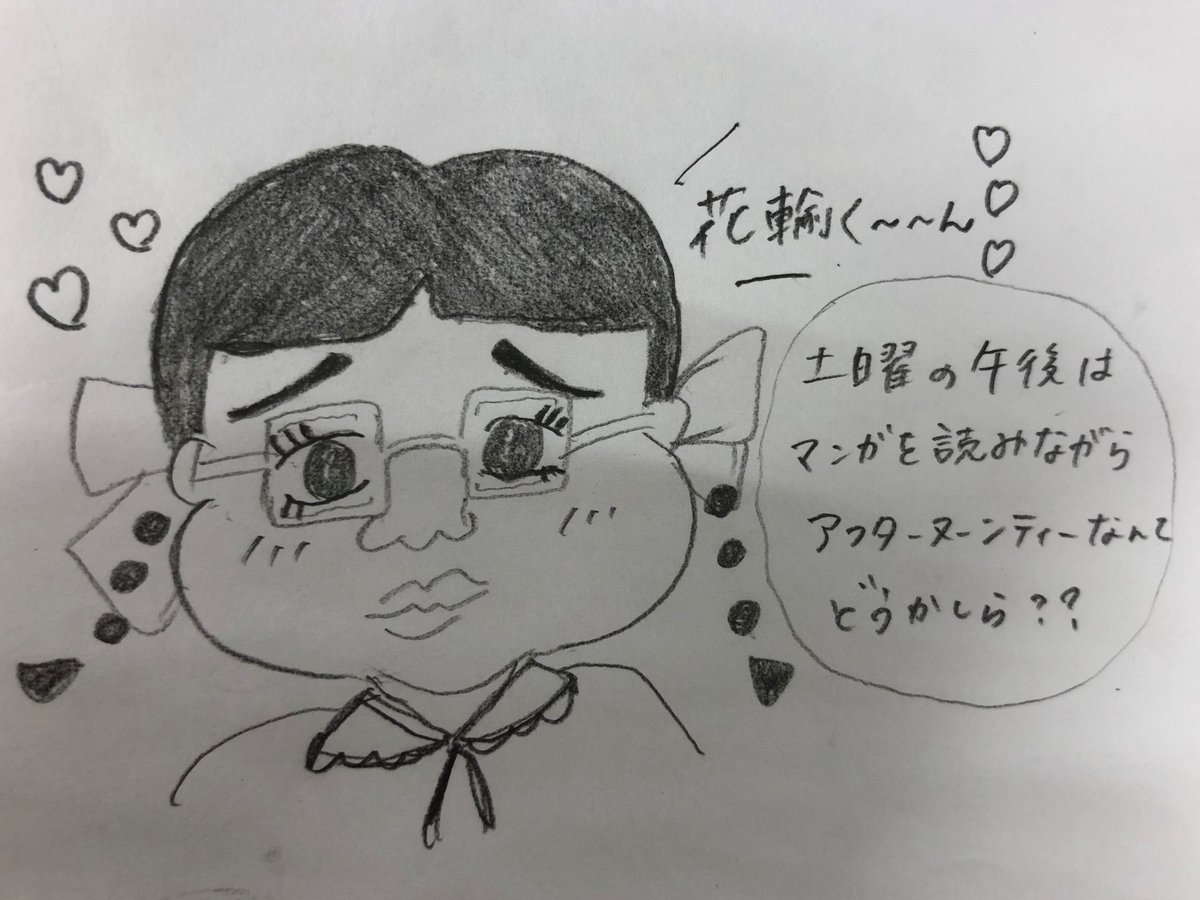 花輪く〜〜ん
土曜の午後は
マンガを読みながら
アフターヌーンティーなんて
どうかしら??